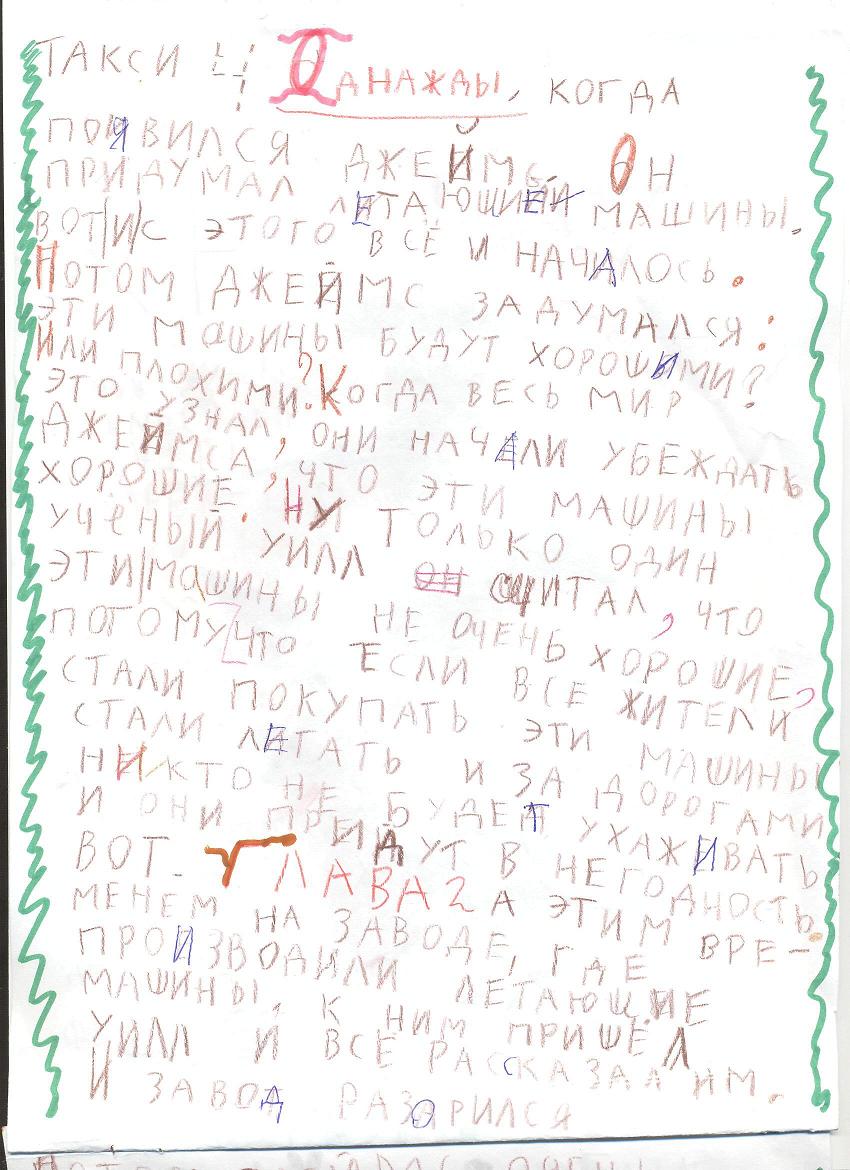 ТАКСИ 4 ОДНАЖДЫ, КОГДА
ПОЯВИЛСЯ ДЖЕЙМС ОН
ПРИДУМАЛ ЛЕТАЮЩИЕ МАШИНЫ.
ВОТ И С ЭТОГО ВСЁ И НАЧАЛОСЬ.
ПОТОМ ДЖЕЙМС ЗАДУМАЛСЯ:
ЭТИ МАШИНЫ БУДУТ ХОРОШИМИ?
ИЛИ ПЛОХИМИ? КОГДА ВЕСЬ МИР
ЭТО УЗНАЛ, ОНИ НАЧАЛИ УБЕЖДАТЬ
ДЖЕЙМСА, ЧТО ЭТИ МАШИНЫ
ХОРОШИЕ. НУ ТОЛЬКО ОДИН
УЧЁНЫЙ УИЛЛ СЧИТАЛ, ЧТО
ЭТИ МАШИНЫ НЕ ОЧЕНЬ ХОРОШИЕ,
ПОТОМУ ЧТО ЕСЛИ ВСЕ ЖИТЕЛИ
СТАЛИ ПОКУПАТЬ ЭТИ МАШИНЫ
СТАЛИ ЛЕТАТЬ И ЗА ДОРОГАМИ
НИКТО НЕ БУДЕТ УХАЖИВАТЬ
И ОНИ ПРЕЙДУТ В НЕГОДНОСТЬ
ВОТ. ГЛАВА 2 А ЭТИМ ВРЕ-
МЕНЕМ НА ЗАВОДЕ, ГДЕ
ПРОИЗВОДИЛИ ЛЕТАЮЩИЕ
МАШИНЫ, К НИМ ПРИШЁЛ
УИЛЛ И ВСЁ РАССКАЗАЛ ИМ.
И ЗАВОД РАЗОРИЛСЯ